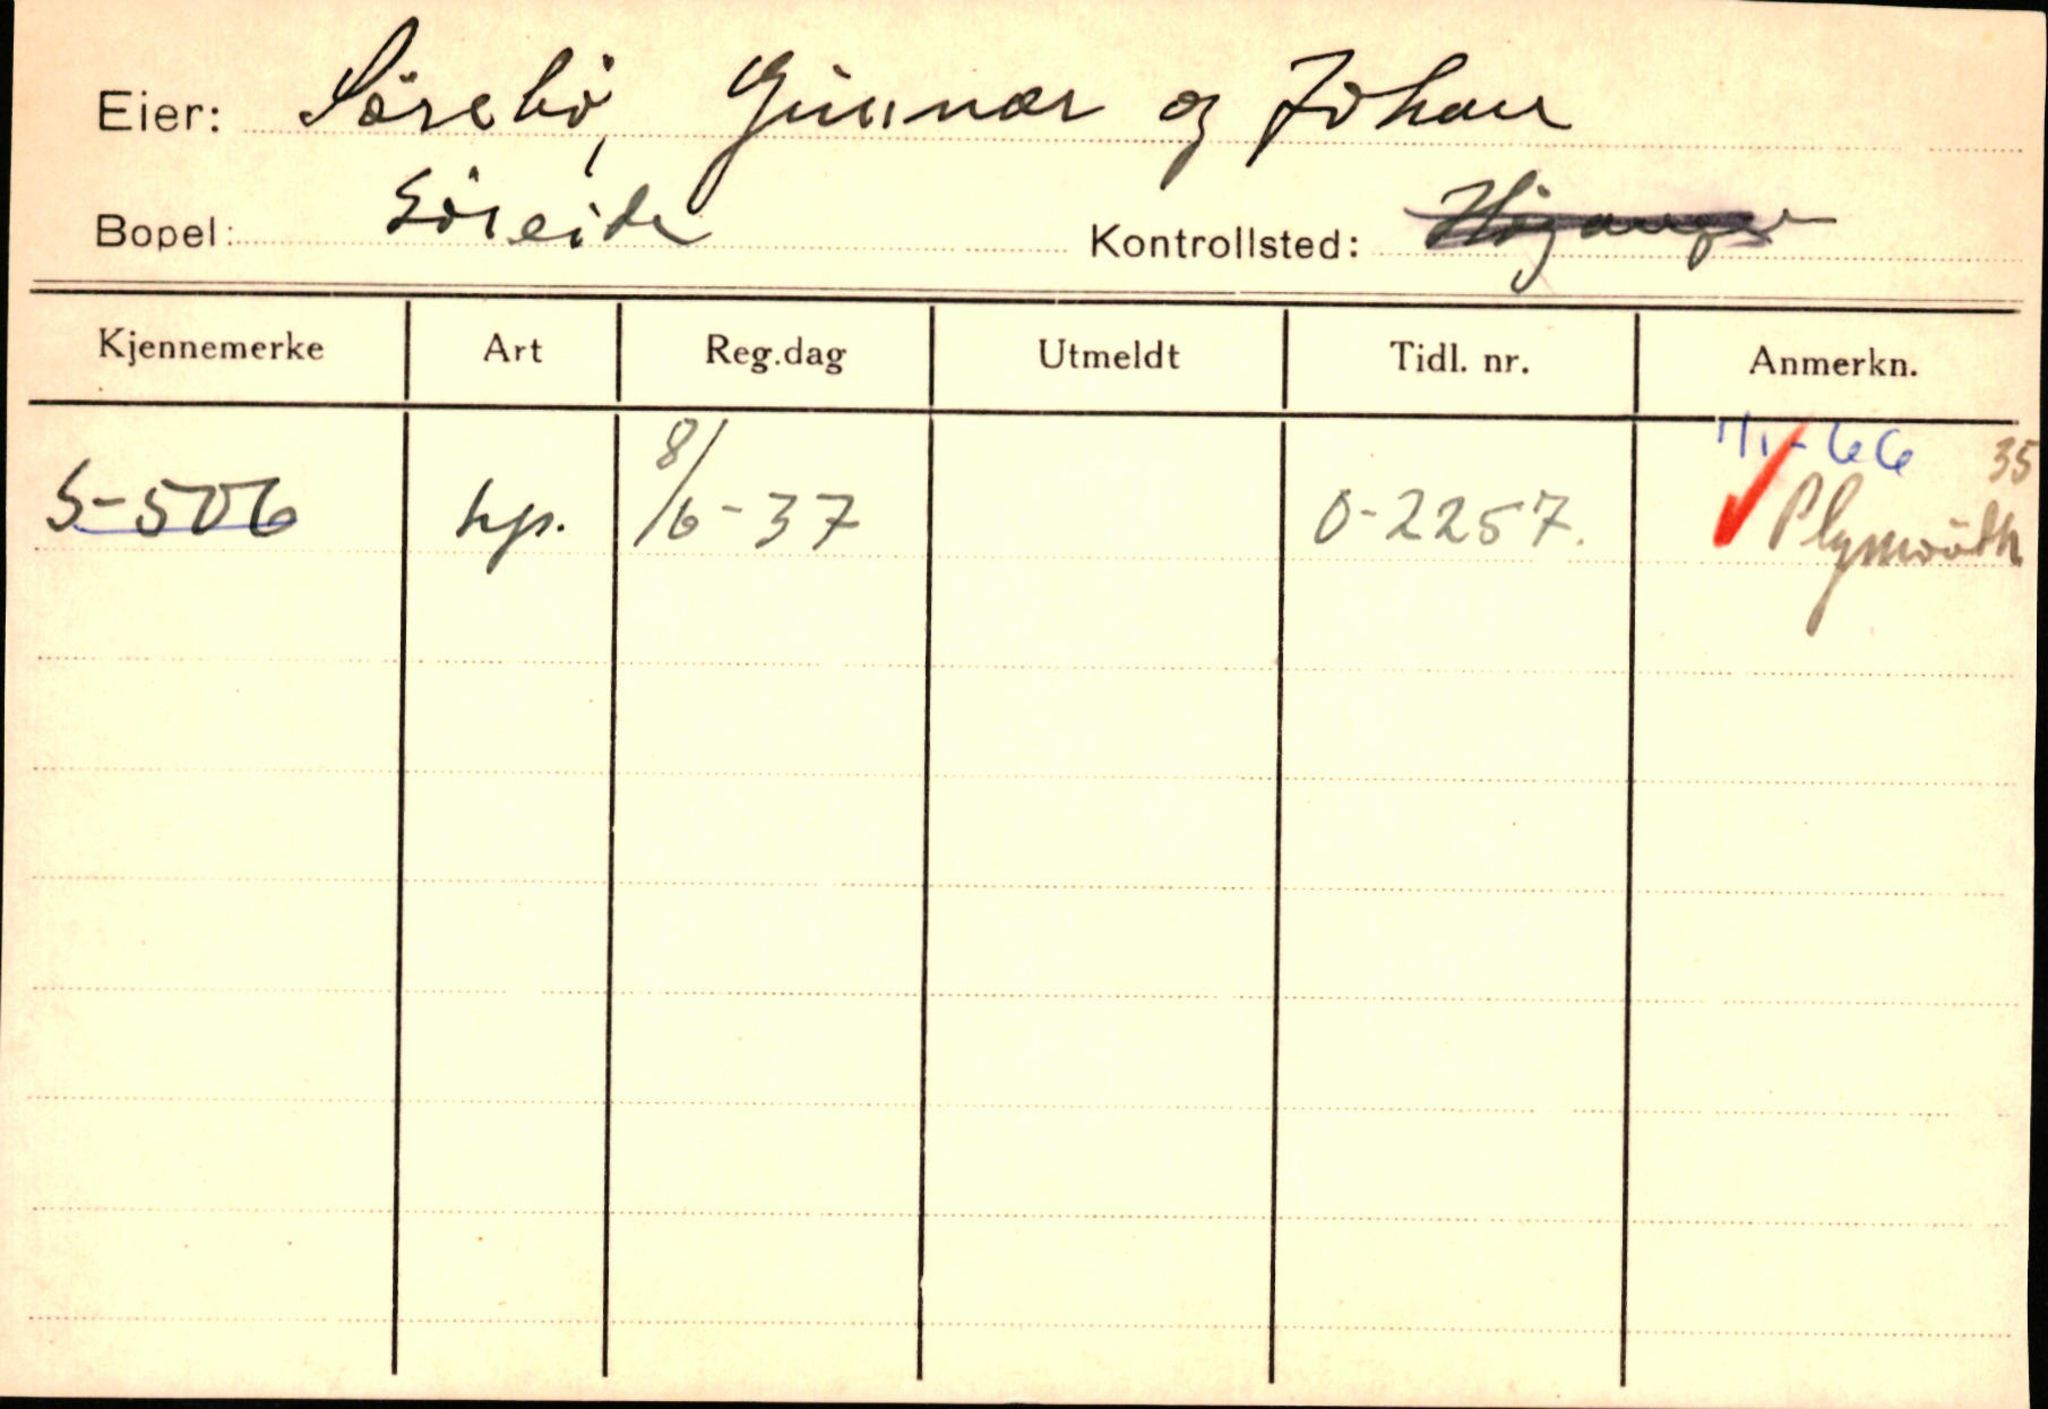 Eier: Sörebö, Gunnar og Johan
Bopel: Söreide Kontrollsted: Höyanger
Kjennemerke Art Reg.dag Utmeldt Tidl. nr. Anmerkn.
1/1-66 35
S-506 hp. 8/6-37 O-2257. Plymouth